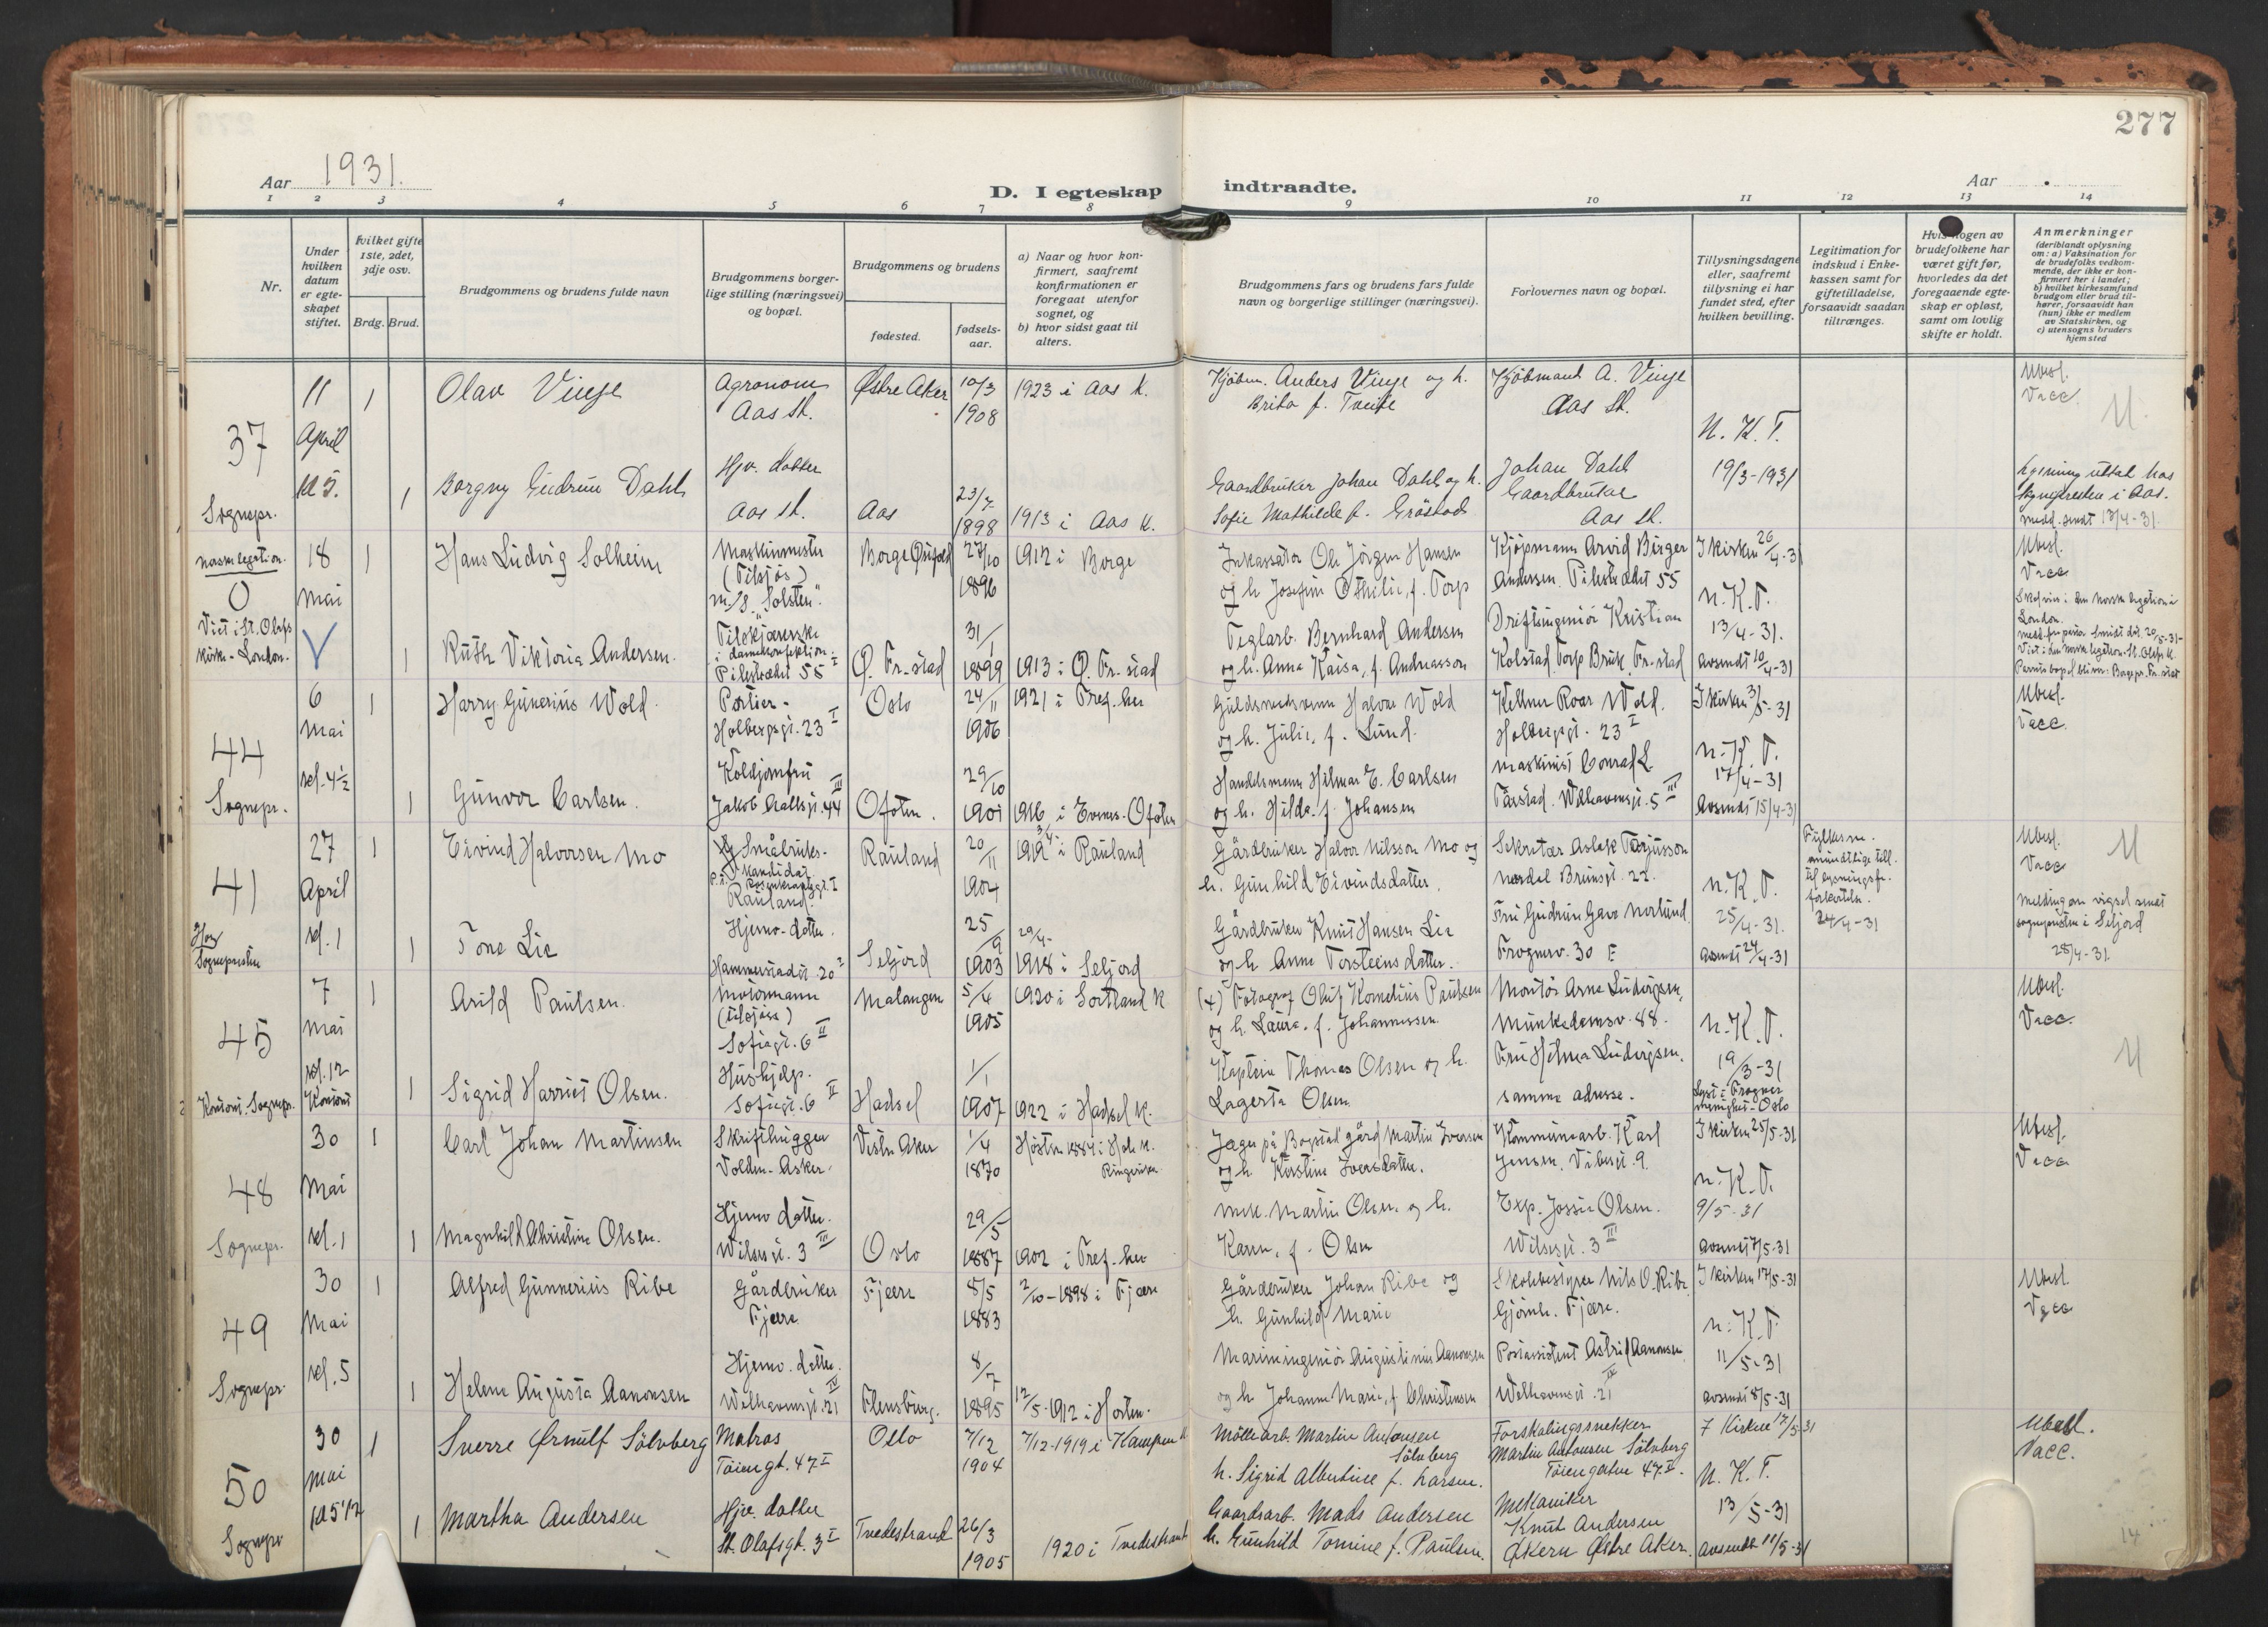 277
Aar 1931.
D. I egteskap indtraadte.
Aar
1 2 3 4 5 6 7 8 9 10 11 12 13 14
Nr.
Under hvilken datum er egteskapet stiftet.
hvilket gifte 1ste, 2det, 3dje osv.
Brdg. Brud.
Brudgommens og brudens fulde navn
Brudgommens borgerlige stilling (næringsvei) og bopæl.
Brudgommens og brudens
fødested.
fødselsaar.
a) Naar og hvor konfirmert, saafremt konfirmationen er foregaat utenfor sognet, og
b) hvor sidst gaat til alters.
Brudgommens fars og brudens fars fulde navn og borgerlige stillinger (næringsvei).
Forlovernes navn og bopæl.
Tillysningsdagene eller, saafremt tillysning ei har fundet sted, efter hvilken bevilling.
Legitimation for indskud i Enkekassen samt for giftetilladelse, forsaavidt saadan tiltrænges.
Hvis nogen av brudefolkene har været gift før, hvorledes da det foregaaende egteskap er opløst, samt om lovlig skifte er holdt.
Anmerkninger
(deriblandt oplysning om: a) Vaksination for de brudefolks vedkommende, der ikke er konfirmert her i landet; b) hvilket kirkesamfund brudgom eller brud tilhører, forsaavidt han (hun) ikke er medlem av Statskirken, og c) utensogns bruders hjemsted
37
Sognepr.
11 April kl 5.
1 Olav Vinje
Agronom Aas st.
Østre Aker
10/3 1908
1923 i Aas K.
Kjøbm. Anders Vinje og h. Brita f. Tveite
Kjøbmand A. Vinje Aas St.
N. K. T.
19/3-1931
Ubesl.
Vacc.
1 Borgny Gudrun Dahl
Hjv. datter Aas st.
Aas
23/7 1898
1913 i Aas K.
Gaardbruker Johan Dahl og h. Sofie Mathilde f. Gråstad
Johan Dahl Gaardbruker Aas st.
Lysning uttat hos Sognepresten i Aas.
Medd. sendt 13/4-31.
norske legation.
0
Viet i St. Olafs kirke - London.
18 Mai
1 Hans Ludvig Solheim
Maskinmester (Tilsjøs) m/S. "Solsten".
Borge Østfold
27/10 1896
1912 i Borge
Inkassator Ole Jörgen Hansen og h. Josefine Othilie, f. Torp
Kjøpmann Arvid Birger Andersen. Pilestrædet 55
I kirken 26/4-31
N. K. T.
13/4-31.
avsendt 10/4-31
Ubesl.
Vacc
V
1 Ruth Viktoria Andersen.
Tilskjærerske i damekonfektion. Pilestrædet 55 I
Ø. Fr.stad
31/1 1899
1913 i Ø. Fr.stad
Teglarb. Bernhard Andersen og h. Anna Kaisa, f. Andreasson
Driftsingeniör Kristian Kolstad Torp Bruk, Fr.stad
44
Sognepr.
6 Mai kl. 4 1/2
1 Harry Gunerius Wold
Portier - Holbergsgt. 23 I
Oslo
24/11 1906
1921 i Tref. her
Guldsmedsvenn Halvor Wold og h. Julie, f. Lund.
Kellner Roar Wold. Holbergsgt. 23 I
I kirken 3/5-31
N. K. T.
17/4-31
avsendt 15/4-31
Ubesl.
Vacc.
1 Gunvor Carlsen.
Koldjomfru Jakob Aallsgt. 44 III
Ofoten.
29/10 1901
1916 i Evenes - Ofoten
Handelsmann Hilmar E. Carlsen og h. Hilda f. Johansen
Maskinist Conrad L. Tårstad. Welhavensgt. 5 III
41
Hos Sognepresten
27 April kl. 1
1 Eivind Halvorsen Mo
Småbruks-kandidat. Rauland.
Rauland
20/11 1904
1919 i Rauland
Gårdbruker Halvor Nilsson Mo og h. Gunhild Eivindsdatter.
Sekretær Aslak Torjusson Nordal Brunsgt. 22.
N. K. T.
25/4-31.
avsendt 24/4-31
24/4-31
Ubesl.
Vacc
Melding om vigsel sendt sognepresten i Seljord 28/4-31.
1 Tone Lie
Hjemv. datter. Hammerstadgt. 20 2
Seljord
25/9 1903
1918 i Seljord
Gårdbruker Knut Hansen Lie og h. Anne Torsteinsdatter.
Fru Gudrun Gave Norlund Frognerv. 30 E
45
Kontoret. Sognepr.
7 Mai kl. 12 Kontoret
1 Arild Paulsen.
Motormann (tilsjøss) Sofiegt. 6 II
Malangen
5/4 1905
1920 i Sortland K
(+) Fotograf Oluf Kornelius Paulsen og h. Laura. f. Johannessen.
Montör Arne Ludvigsen, Munkedamsv. 88.
N. K. T.
19/3-31
Lyst i Frogner menighet - Oslo
Ubesl.
Vacc.
1 Sigrid Harriet Olsen.
Hushjelp. Sofiegt. 6 II
Hadsel
1/1 1907
1922 i Hadsel K.
Kaptein Thomas Olsen og h. Lagerta Olsen.
Fru Helma Ludvigsen. samme adresse.
48
Sognepr.
30 Mai kl. 1
1 Carl Johan Martinsen
Skrifthugger Volden - Asker.
Vestre Aker
1/4 1870
Høsten 1884 i Hole K. Ringerike
Jæger på Bogstad gård Martin Iversen og h. Kirstine Iversdatter.
Kommunearb. Karl Jensen, Vibesgt. 9.
I kirken 25/5-31
N. K. T.
9/5-31
avsendt 7/5-31
Ubesl.
Vacc
1 Magnhild Christine Olsen.
Hjemv datter. Wilsesgt. 3 III
Oslo
29/5 1887
1902 i Tref. her
Mek. Martin Olsen og h. Karen, f. Olsen
Exp. Jossie Olsen. Wilsesgt. 3 III
49
Sognepr.
30 Mai kl. 5
1 Alfred Gunnerius Ribe
Gårdbruker Fjære
Fjære
8/5 1883
2/10-1898 i Fjære
Gårdbruker Johan Ribe og h. Gunhild Marie
Skolebestyrer Nils O. Ribe Fjære.
I kirken 17/5-31
N. K. T.
11/5-31
avsendt 8/5-31
Ubesl.
Vacc
1 Helene Augusta Aanonsen
Hjemv. datter. Welhavensgt. 21 IV
Flensburg.
8/7 1895
12/5-1912 i Horten.
Marineingeniör Augustinius Aanonsen og h Johanne Marie, f. Christensen
Postassistent Astrid Aanonsen. Welhavensgt. 21 IV
50
Sognepr
30 Mai kl 5 1/2
1 Sverre Ørnulf Sölvberg
Matros Töiengt. 47 I
Oslo
7/12 1904
7/12-1919 i Kampen K
Möllearb. Martin Antonsen Sölvberg h. Sigrid Albertine f. Larsen.
Forskalingssnekker Martin Antonsen Sölvberg Töiengaten 47 I.
I Kirken 17/5-31
N. K. T.
13/5-31
avsendt 11/5-31
Ubesl.
Vacc.
1 Martha Andersen
Hjv. datter St. Olafsgt. 3 I
Tvedestrand
26/3 1905
1920 i Tvedestrand
Gaardsarb. Mads Andersen h. Gunhild Tomine f. Paulsen.
Mekaniker Knut Andersen Økern Østre Aker.
14